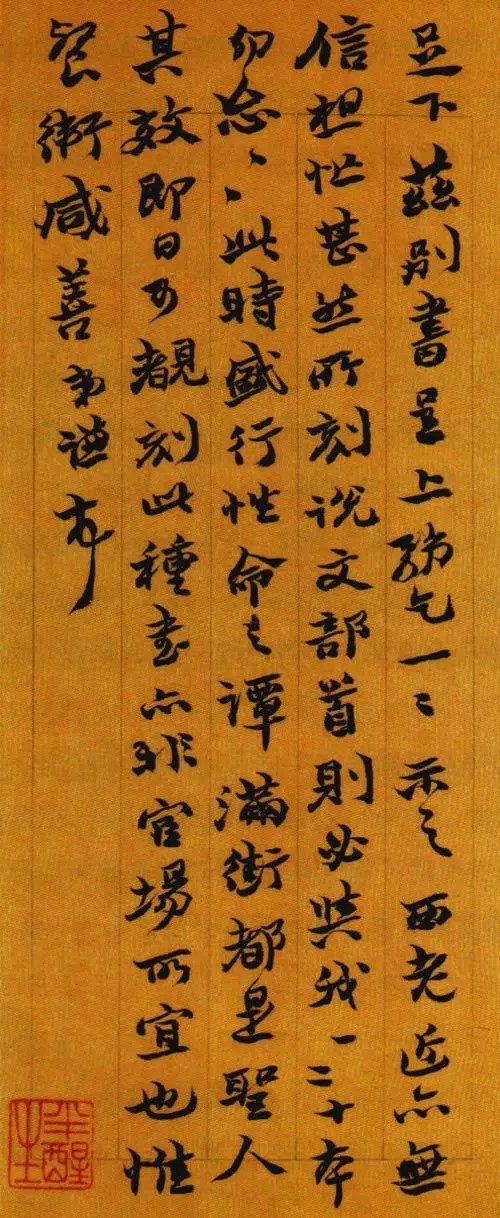 足下茲別書呈上務乞一二示之西老近亦無
信想忙甚然所刻說文部首則必與我一二十本
勿忘〻此時盛行性命之譚滿街都是聖人
其效即日可覩刻此種書亦非官場所宜也惟
餐衛咸善弟